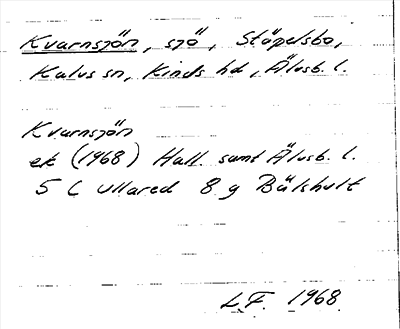 Kvarnsjön, sjö, Stöpelsbo,
Kalvs sn, Kinds hd, Älvsb. l.
Kvarnsjön
ek (1968) Hall. samt Älvsb. l.
5 C Ullared 8 g Bälshult
L.F. 1968